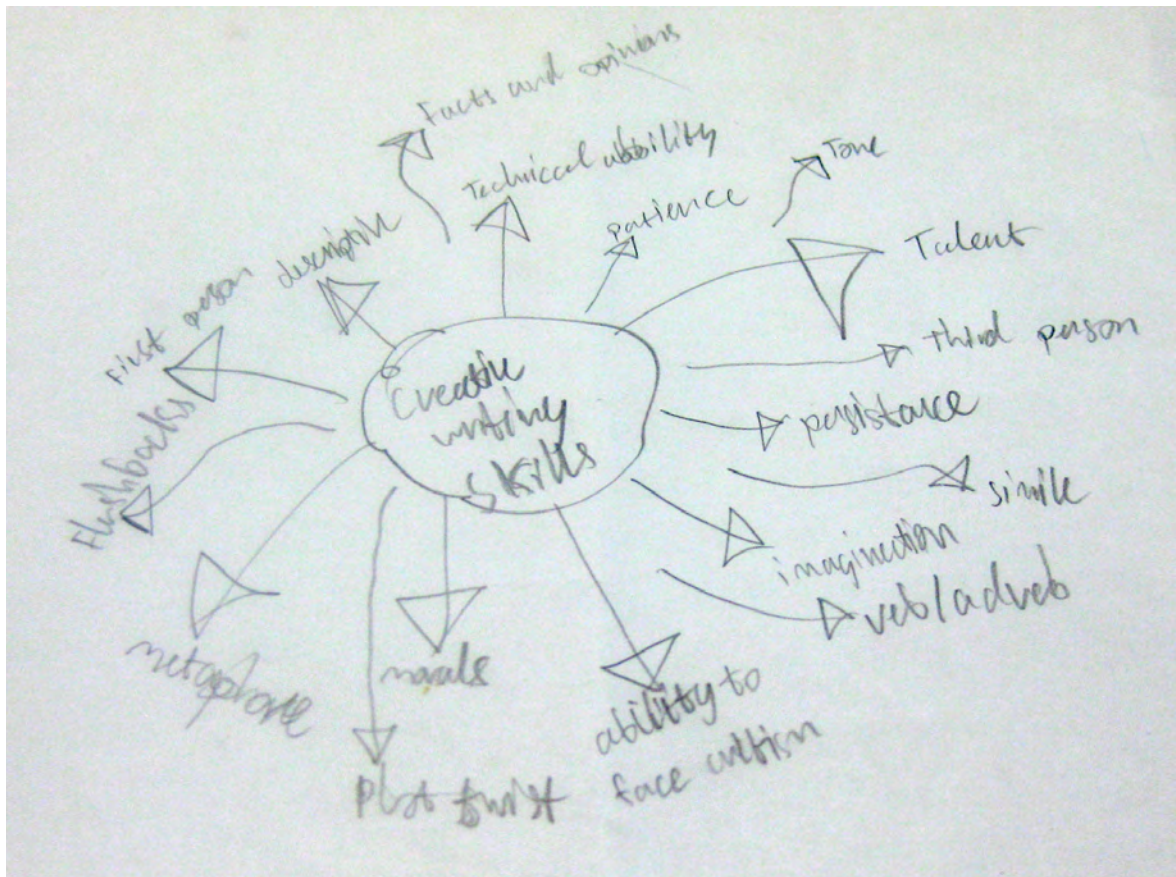 Creative
writing
skills
Facts and opinions
Technical abbility
patience
Tone
Talent
Third person
persistance
simile
imagination
veb/adveb
ability to
face critism
morals
Plot twist
metaphore
Flashbacks
First person
descriptive